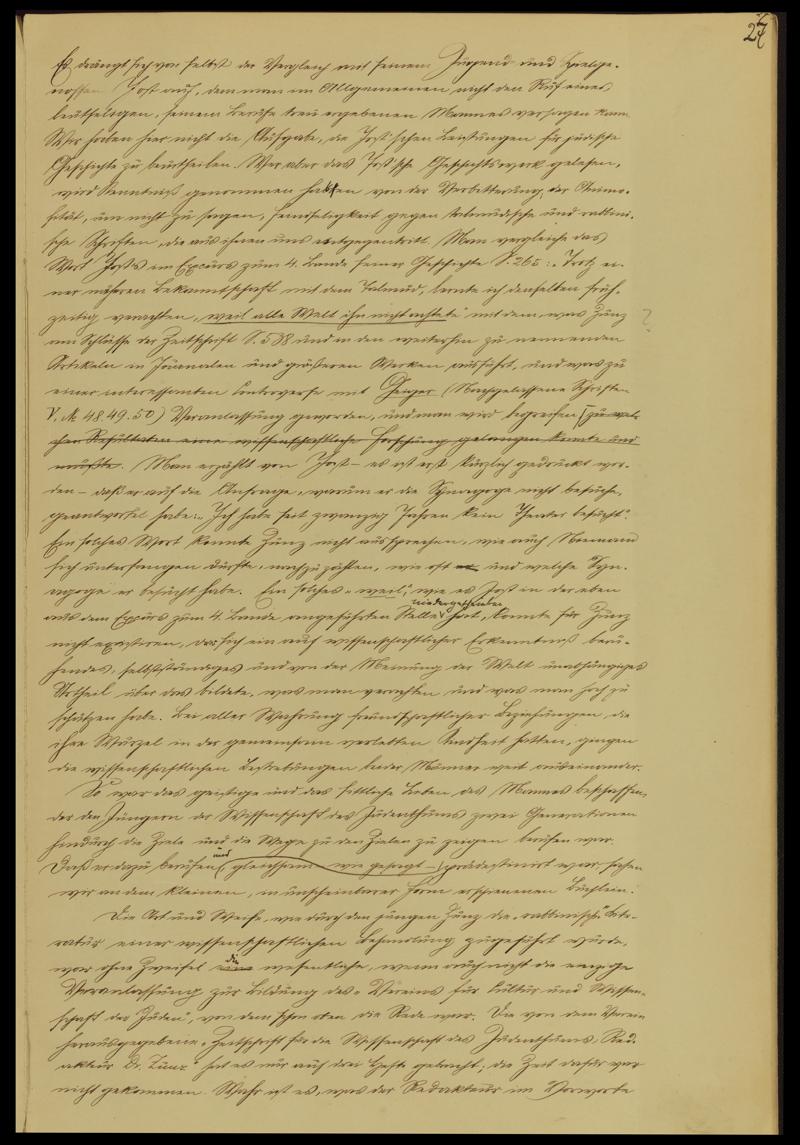 27
Es drängt sich von selbst der Vergleich mit seinem Jugend- und Spielge-
nossen Jost auf, dem man im Allgemeinen nicht den Ruf eines
leutseligen, seinem Berufe treu ergebenen Mannes versagen kann.
Wir haben hier nicht die Aufgabe, die Jost'schen Leistungen für jüdische
Geschichte zu beurtheilen. Wer aber das Jost'sche Geschichtswerk gelesen,
wird Kenntniß genommen haben von der Verbitterung, der Animo-
sität, um nicht zu sagen, Feindseligkeit gegen talmudische und rabbini-
sche Schriften, die aus ihnen uns entgegentritt. Man vergleiche das
Wort Josts im Excurs zum 4. Bande seiner Geschichte S. 265: „Trotz ei-
ner näheren Bekanntschaft mit dem Talmud, lernte ich denselben früh-
zeitig verachten, weil alle Welt ihn nicht achtete" mit dem, was Zunz
am Schlusse der Zeitschrift S. 538 und in den weiterhin zu nennenden
Artikeln in Journalen und größeren Werken ausführt, und was zu
einer interessanten Controverse mit Geiger (Nachgelassene Schriften
V. № 48.49.50) Veranlassung geworden, und man wird begreifen, zu wel-
chen Resultaten eine wissenschaftliche Forschung gelangen konnte und
mußte. Man erzählt von Jost – es ist erst kürzlich gedruckt wor-
den – daß er auf die Anfrage, warum er die Synagoge nicht besuche,
geantwortet habe: „Ich habe seit zwanzig Jahren kein Theater besucht".
Ein solches Wort konnte Zunz nicht aussprechen, wie auch Niemand
sich unterfangen dürfte, nachzuzählen, wie oft und welche Syn-
agoge er besucht habe. Ein solches „weil", wie es Jost in der eben
niedergeschrieben
aus dem Excurs zum 4. Bande angeführten Stelle hat, konnte für Zunz
nicht existiren, der sich ein auf wissenschaftlicher Erkenntniß beru-
hendes, selbstständiges und von der Meinung der Welt unabhängiges
Urtheil über das bildete, was man verachten und was man hoch zu
schätzen habe. Bei aller Wahrung freundschaftlicher Beziehungen, die
ihre Wurzel in der gemeinsam verlebten Kindheit hatten, gingen
die wissenschaftlichen Bestrebungen beider Männer weit auseinander.
So war das geistige und das sittliche Leben des Mannes beschaffen,
der den Jüngern der Wissenschaft des Judenthums zwei Generationen
hindurch die Ziele und die Wege zu den Zielen zu zeigen berufen war.
Daß er dazu berufen und (gleichsam – wie gesagt –) prädestinirt war, sehen
wir an dem kleinen, in unscheinbarer Form erschienenen Büchlein.
Die Art und Weise, wie durch den jungen Zunz die „rabbinische" Lite-
ratur einer wissenschaftlichen Behandlung zugeführt wurde,
war ohne Zweifel die wesentliche, wenn auch nicht die einzige
Veranlassung zur Bildung des „Vereins für Cultur und Wissen-
schaft der Juden", von dem schon oben die Rede war. Die von dem Verein
herausgegebene „Zeitschrift für die Wissenschaft des Judenthums, Red-
akteur Dr. Zunz" hat es nur auf drei Hefte gebracht; die Zeit dafür war
nicht gekommen. Wahr ist es, was der Redakteur im Vorworte